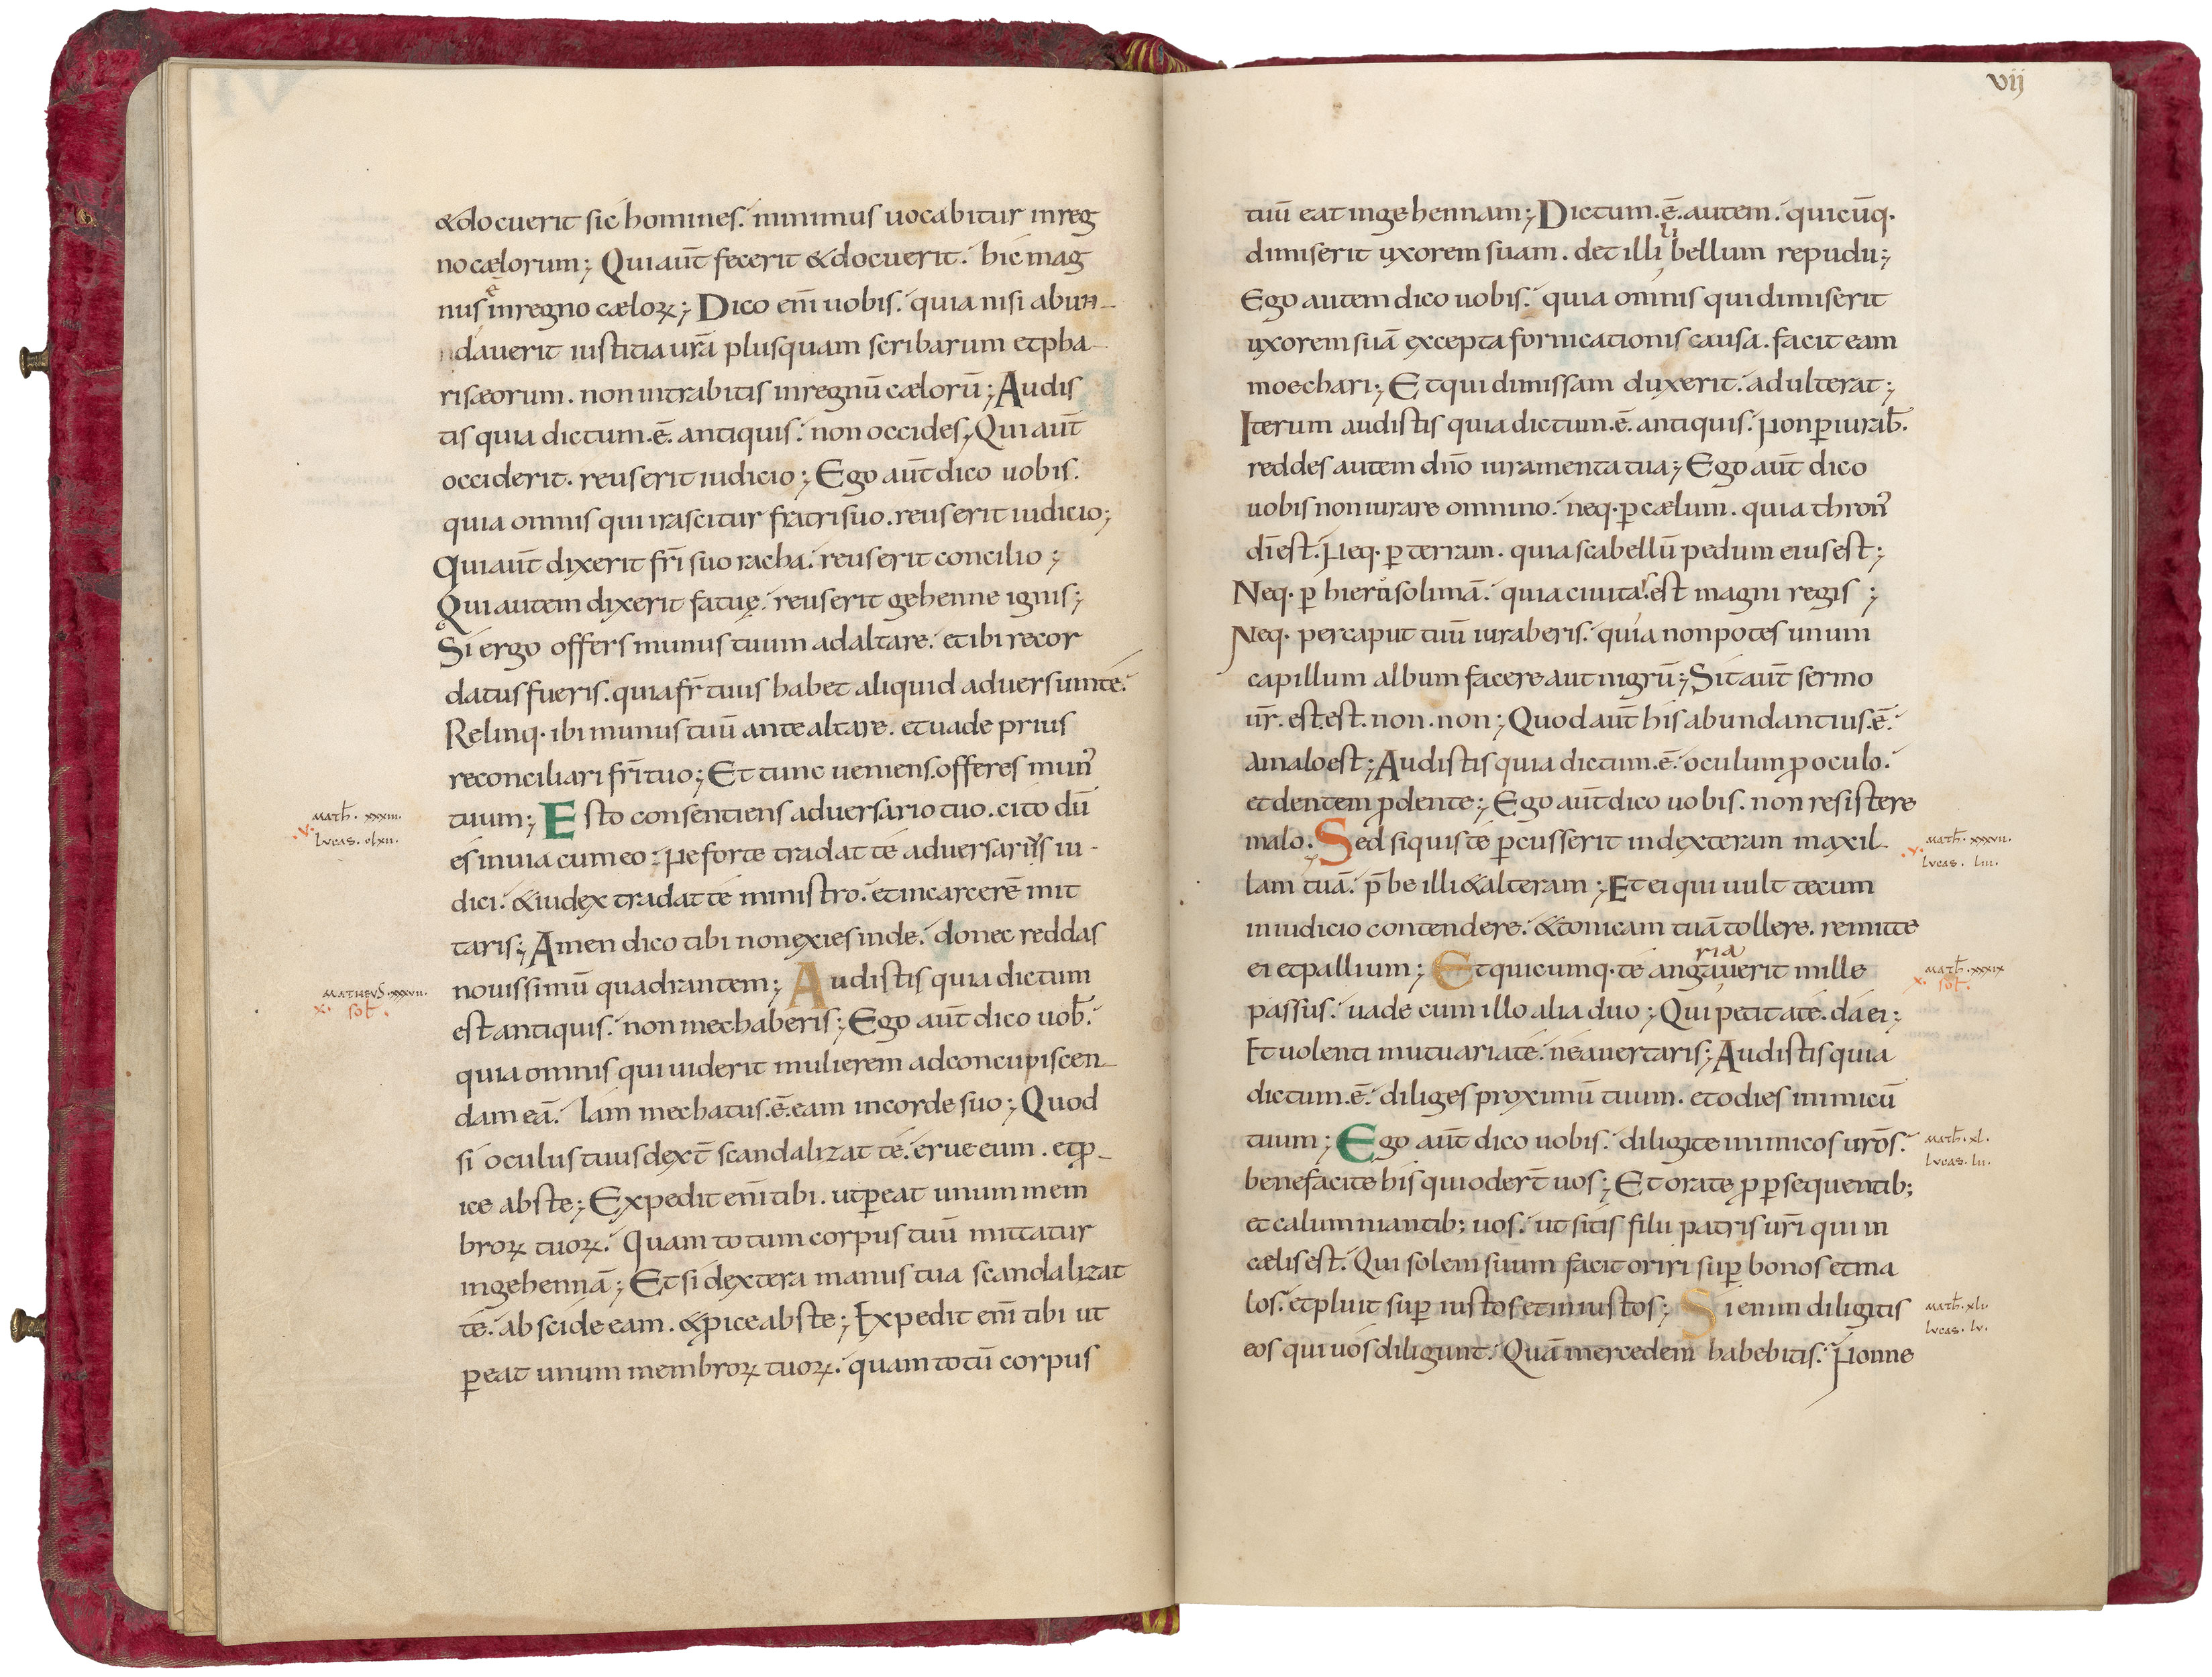 &docuerit sic homines. minimus uocabitur inreg
no cælorum; Qui aut̄ fecerit &docuerit. hic mag
nus ē inregno cæloꝝ; Dico eni̅ uobis. quia nisi abun-
ndauerit iustitia ura̅ plusquam scribarum etpha-
risæorum. non intrabitis inregnu̅ cæloru̅; Audis
tis quia dictum.e̅. antiquis. non occides; Qui aut̄
occiderit. reus erit iudicio; Ego aut̄ dico uobis.
quia omnis qui irascitur fratri suo. reus erit iudicio;
Qui aut̄ dixerit fri̅ suo racha. reus erit concilio;
Qui autem dixerit fatuę. reus erit gehenne ignis;
Si ergo offers munus tuum ad altare. et ibi recor
datus fueris. quia fr̅ tuus habet aliquid aduersum te.
Relinq· ibi munus tuu̅ ante altare. et uade prius
reconciliari fri̅ tuo; Et tunc ueniens. offeres mun᾽
Math̅. xxxiii.
.v.
Lucas. clxii.
tuum; Esto consentiens aduersario tuo. cito du̅
es in uia cum eo. Ne forte tradat te aduersarius iu-
dici. & iudex tradat te ministro. et in carcere̅ mit
taris; Amen dico tibi non exies inde. donec reddas
MATHEVS. xxxvii.
x. sol̅.
nouissimu̅ quadrantem; Audistis quia dictum
est antiquis. non mechaberis; Ego aut̄ dico uob̅.
quia omnis qui uiderit mulierem ad concupiscen-
dam ea̅. Iam mechatus.e̅. eam in corde suo; Quod
si oculus tuus dext̄ scandalizat te. erue eum. et ꝓ-
ice abs te; Expedit eni̅ tibi. ut ꝑeat unum mem
broꝝ tuoꝝ. Quam totum corpus tuu̅ mittatur
in gehenna̅; Et si dextera manus tua scandalizat
te. abscide eam. & ꝓice abs te; Expedit eni̅ tibi ut
ꝑeat unum membroꝝ tuoꝝ. quam totu̅ corpus
vij
23
tuu̅ eat in gehennam; Dictum.e̅. autem. quicu̅q·
dimiserit uxorem suam. det illi libellum repudii;
Ego autem dico uobis. quia omnis qui dimiserit
uxorem sua̅ excepta fornicationis causa. facit eam
moechari; Et qui dimissam duxerit. adulterat;
Iterum audistis quia dictum.e̅. antiquis. Non ꝑiurab̅.
reddes autem dn̅o iuramenta tua; Ego aut̄ dico
uobis non iurare omnino. neq· ꝑ cælum. quia thron᾽
di̅ est. Neq· ꝑ terram. quia scabellu̅ pedum eius est;
Neq· ꝑ hierosolima̅. quia ciuitas est magni regis;
Neq· per caput tuu̅ iuraberis. quia non potes unum
capillum album facere aut nigru̅; Sit aut̄ sermo
ur̅. est.est. non.non; Quod aut̄ his abundantius.e̅.
a malo est; Audistis quia dictum.e̅. oculum ꝓ oculo.
et dentem ꝓ dente; Ego aut̄ dico uobis. non resistere
malo. Sed si quis te ꝑcusserit in dexteram maxil-
Math̅. xxxvii.
.v.
Lucas. liii.
lam tua̅. p̅be illi & alteram; Et ei qui uult tecum
in iudicio contendere. & tonicam tua̅ tollere. remitte
ei et pallium; Et quicumq· te angariauerit mille
Math̅. xxxix
x. sol̅.
passus. uade cum illo alia duo; Qui petit a te. da ei;
Et uolenti mutuari a te. ne auertaris; Audistis quia
dictum.e̅. diliges proximu̅ tuum. et odies inimicu̅
tuum; Ego aut̄ dico uobis. diligite inimicos uro̅s.
Math̅. xl.
Lucas. lii.
benefacite his qui odert̄ uos; Et orate ꝓ ꝑsequentib;
et calumniantib; uos. ut sitis filii patris uri̅ qui in
cælis est. Qui solem suum facit oriri suꝑ bonos et ma
los. et pluit suꝑ iustos et iniustos; Si enim diligitis
Math̅. xli.
Lucas. lv.
eos qui uos diligunt. Qua̅ mercedem habebitis. Nonne